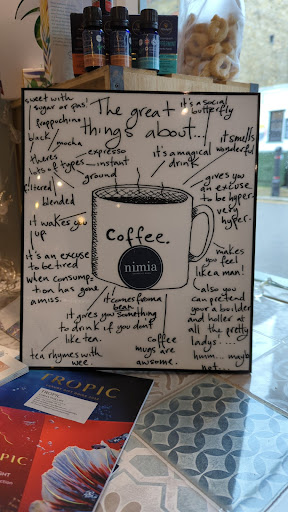 The great
things about...
sweet with
sugar or gas!
frappuchino
black
mocha
espresso
instant
theres
lots of types
ground
filtered
blended
it wakes you
up
it's an excuse
to be tired
when consump-
tion has gone
amiss.
it gives you something
to drink if you dont
like tea.
tea rhymes with
wee.
it comes from a
bean.
coffee
mugs are
awsome.
it's a social
butterfly
it's a magical
drink
it smells
wonderful
gives you
an excuse
to be hyper-
very
hyper-
makes you
feel
like a man!
also you
can pretend
your a boilder
and holler at
all the pretty
ladys....
hmm... maybe
not...
Coffee.
nimia
TROPIC
TROPIC